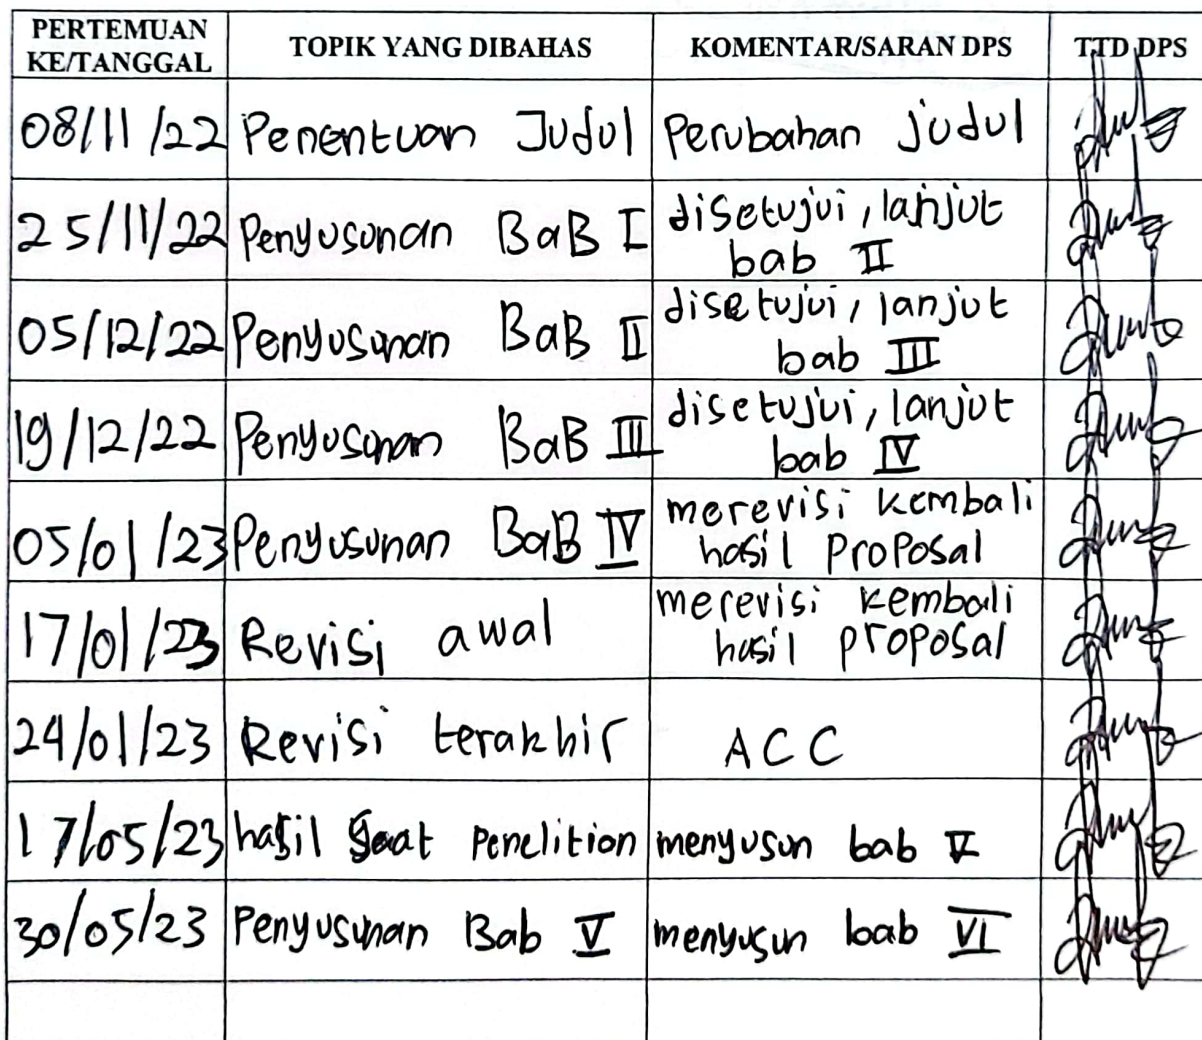 PERTEMUAN KE/TANGGAL TOPIK YANG DIBAHAS KOMENTAR/SARAN DPS TTD DPS
08/11/22 Penentuan Judul Perubahan judul
25/11/22 Penyusunan BaB I disetujui, lanjut
bab II
05/12/22 Penyusunan BaB II disetujui, lanjut
bab III
19/12/22 Penyusunan BaB III disetujui, lanjut
bab IV
05/01/23 Penyusunan BaB IV merevisi kembali
hasil proposal
17/01/23 Revisi awal merevisi kembali
hasil proposal
24/01/23 Revisi terakhir ACC
17/05/23 hasil Saat Penelitian menyusun bab V
30/05/23 Penyusunan Bab V menyusun bab VI